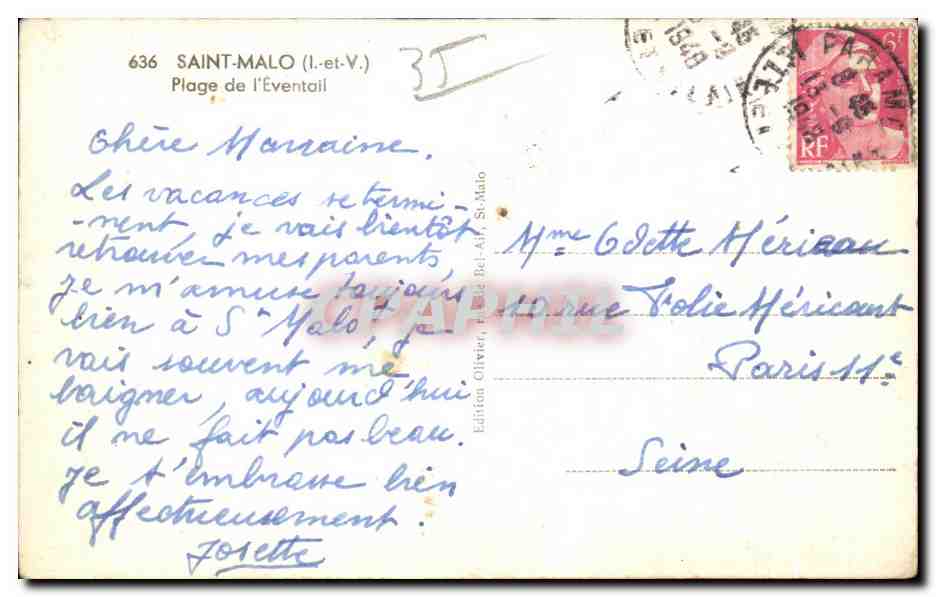 636 SAINT-MALO (I.-et-V.)
Plage de l'Éventail
35
Chère Marraine.
Les vacances se termi-
-nent, je vais bientôt
retrouver mes parents,
je m'amuse toujours
bien à St Malo, je
vais souvent me
baigner, aujourd'hui
il ne fait pas beau.
Je t'embrasse bien
affectueusement.
Josette
Edition Olivier, de Bel-Air, St-Malo
Mme Odette Méricau
10 rue Folie Méricourt
Paris 11e
Seine
6F
RF
PARAME
1948
CPAPHIL